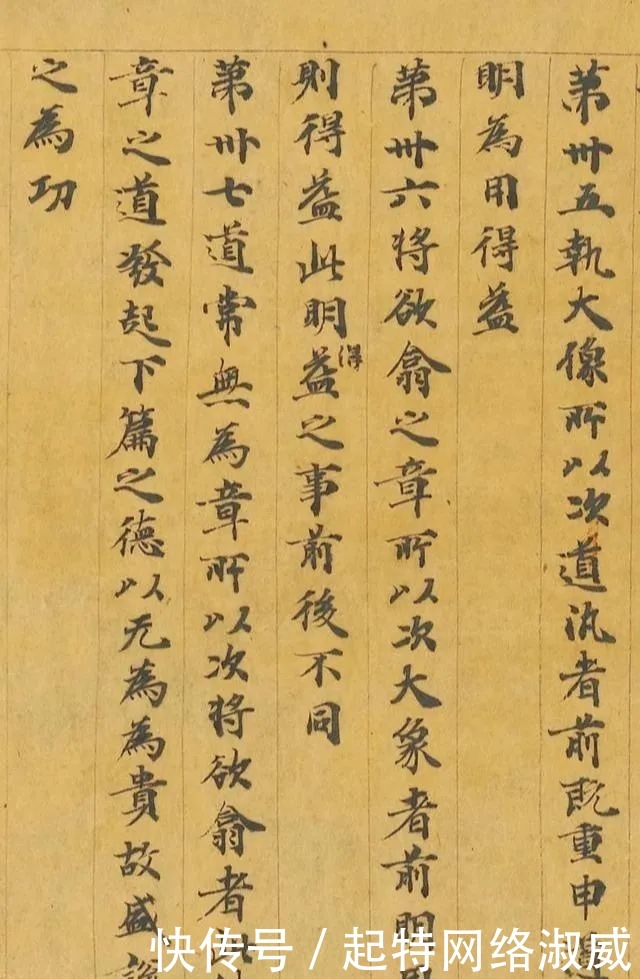 第卅五執大像所以次道汎者前既重申
明為用得益
第卅六将欲翕之章所以次大象者前明
則得益此明益得之事前後不同
第卅七道常無為章所以次将欲翕者
章之道發起下篇之德以无為為貴故盛
之為功
快传号/起特网络淑威